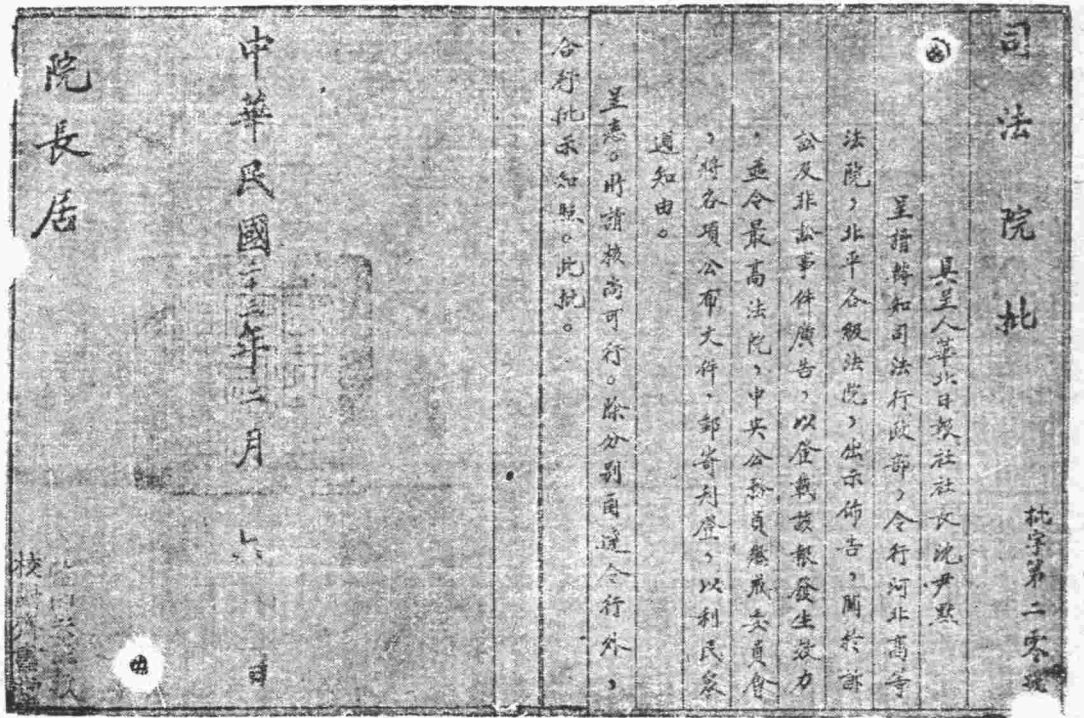 司法院批
批字第二零號
具呈人華北日報社社長沈尹默
呈請轉知司法行政部，令行河北高等
法院，北平各級法院，出示佈告，關於訴
訟及非訟事件廣告，以登載該報發生效力
，並令最高法院，中央公務員懲戒委員會
，將各項公布文件，郵寄刊登，以利民眾
通知由。
呈悉。所請核尚可行。除分別函達令行外，
合行批示知照。此批。
中華民國二十三年二月六日
院長居
校對